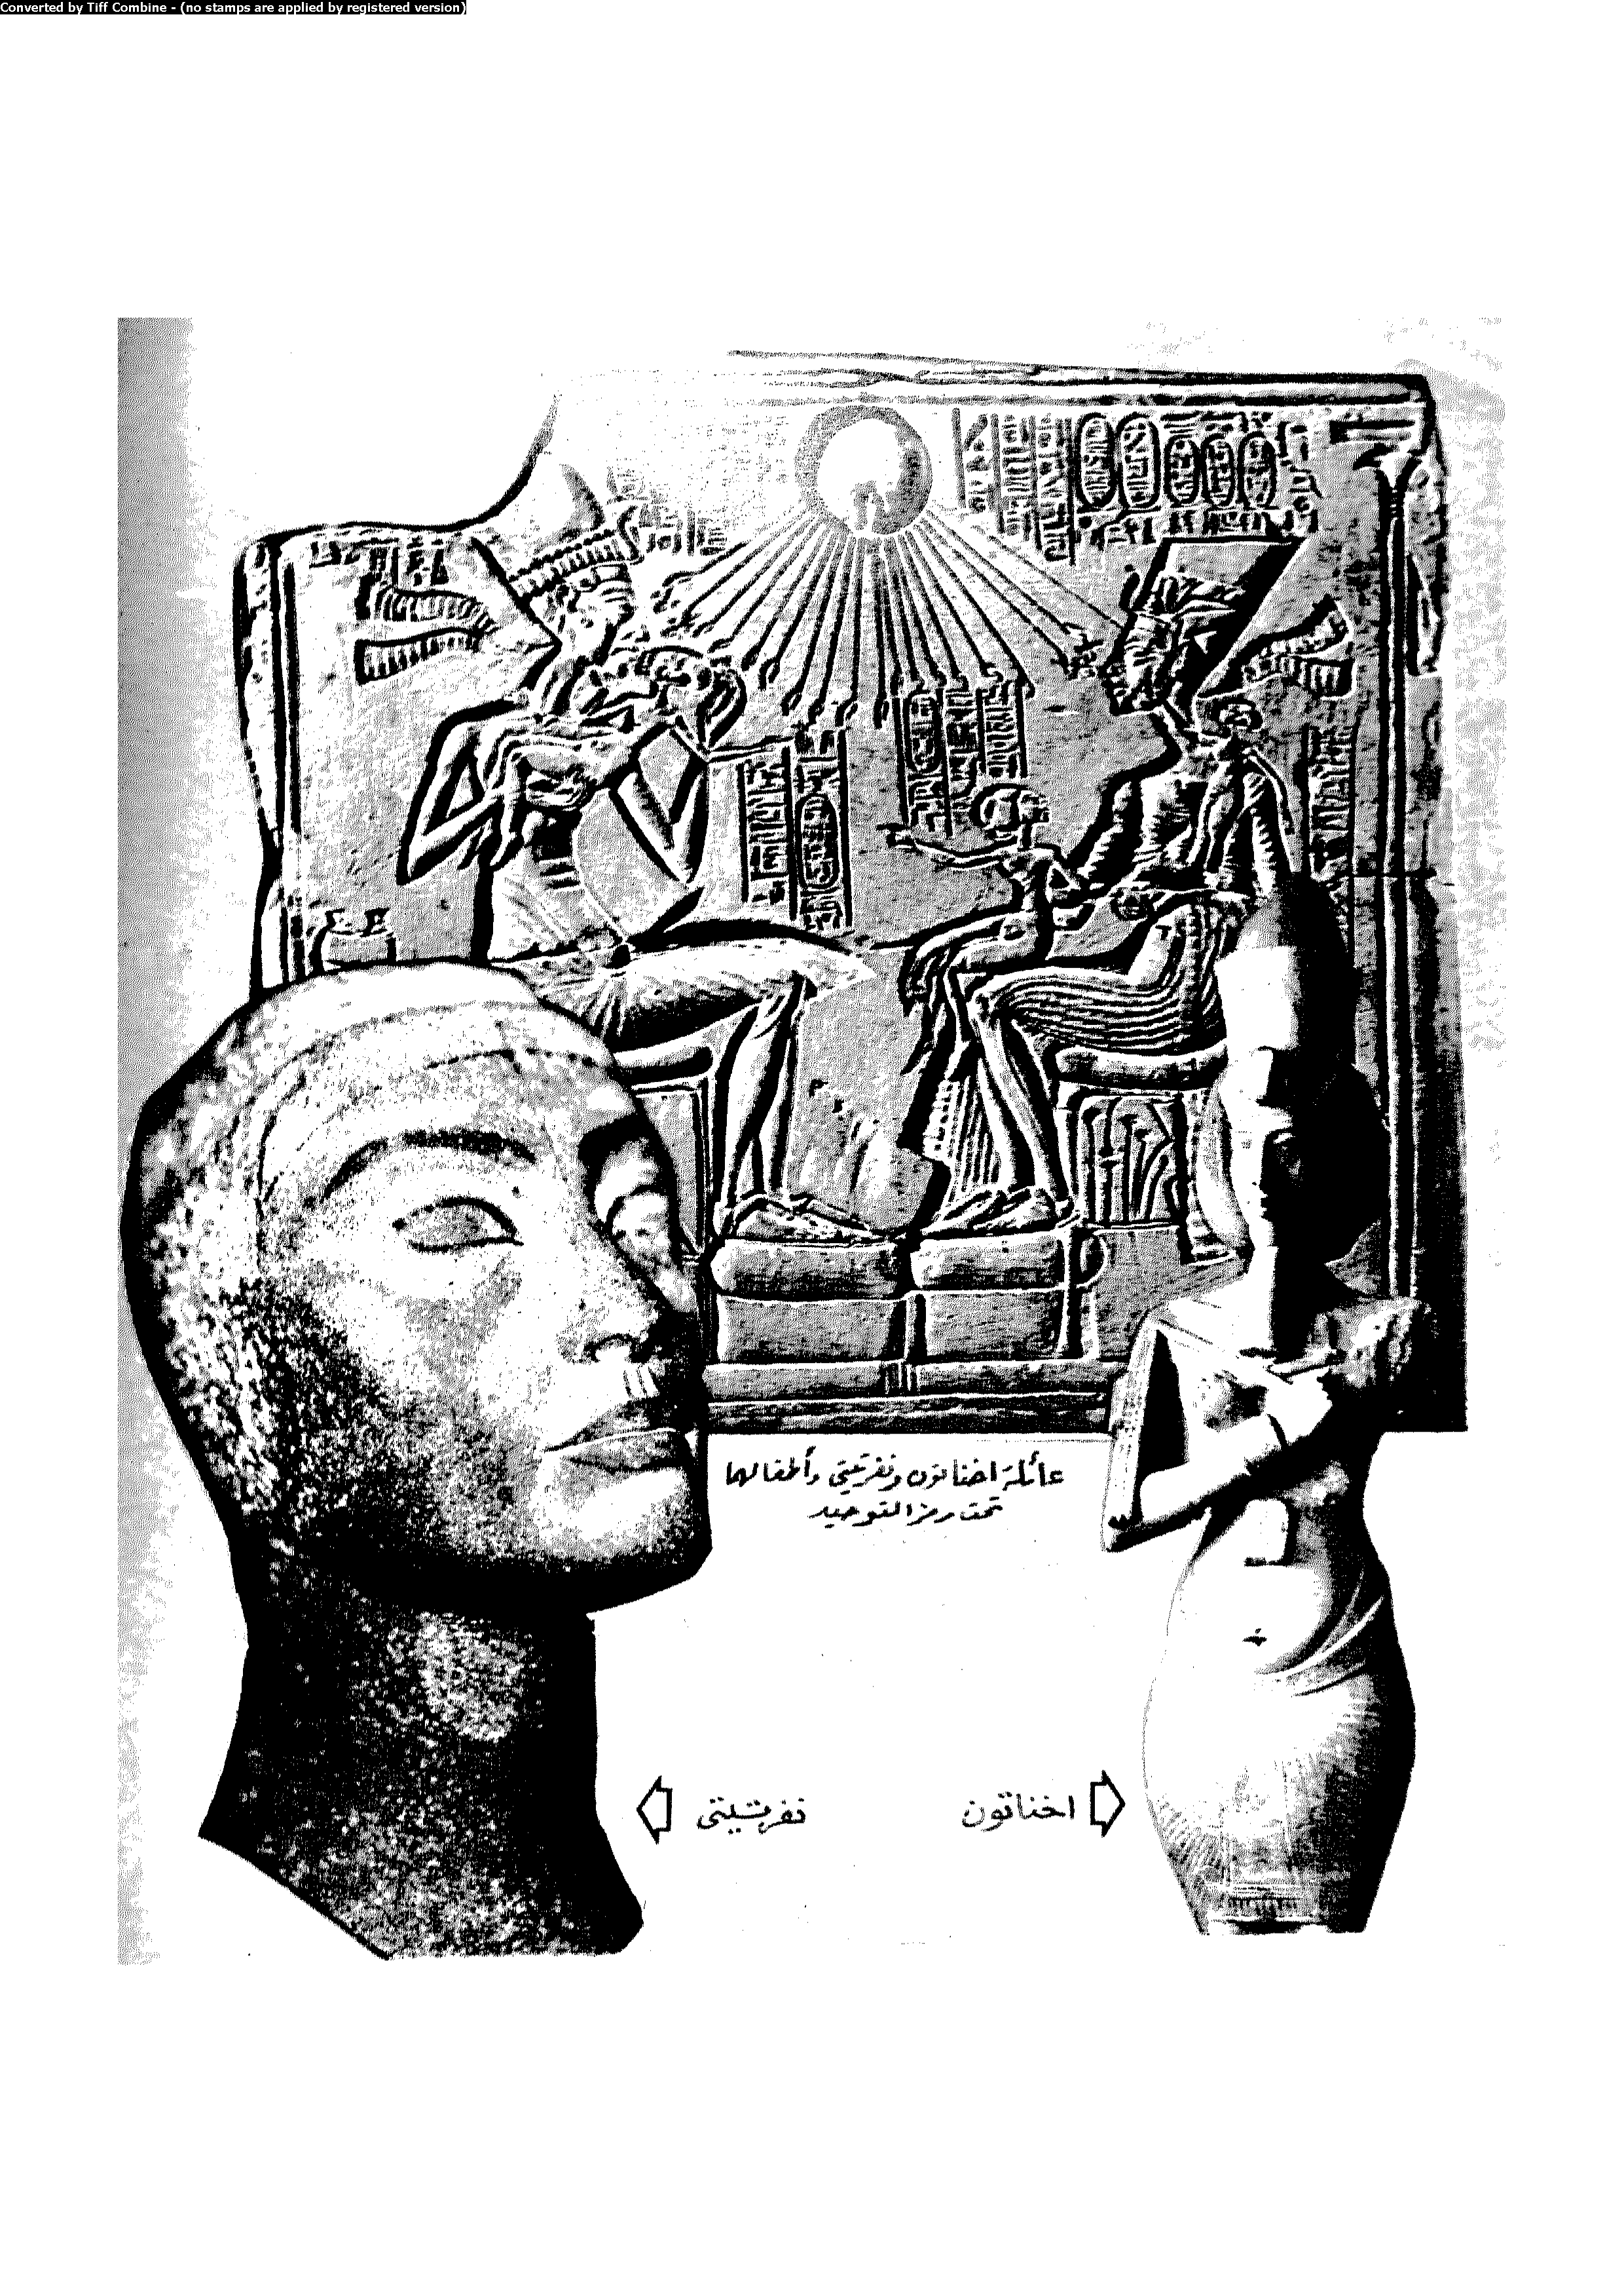 Converted by Tiff Combine - (no stamps are applied by registered version)
عائلة اخناتون ونفرتيتى وأطفالهما
تحت رمز التوحيد
اخناتون
نفرتيتى